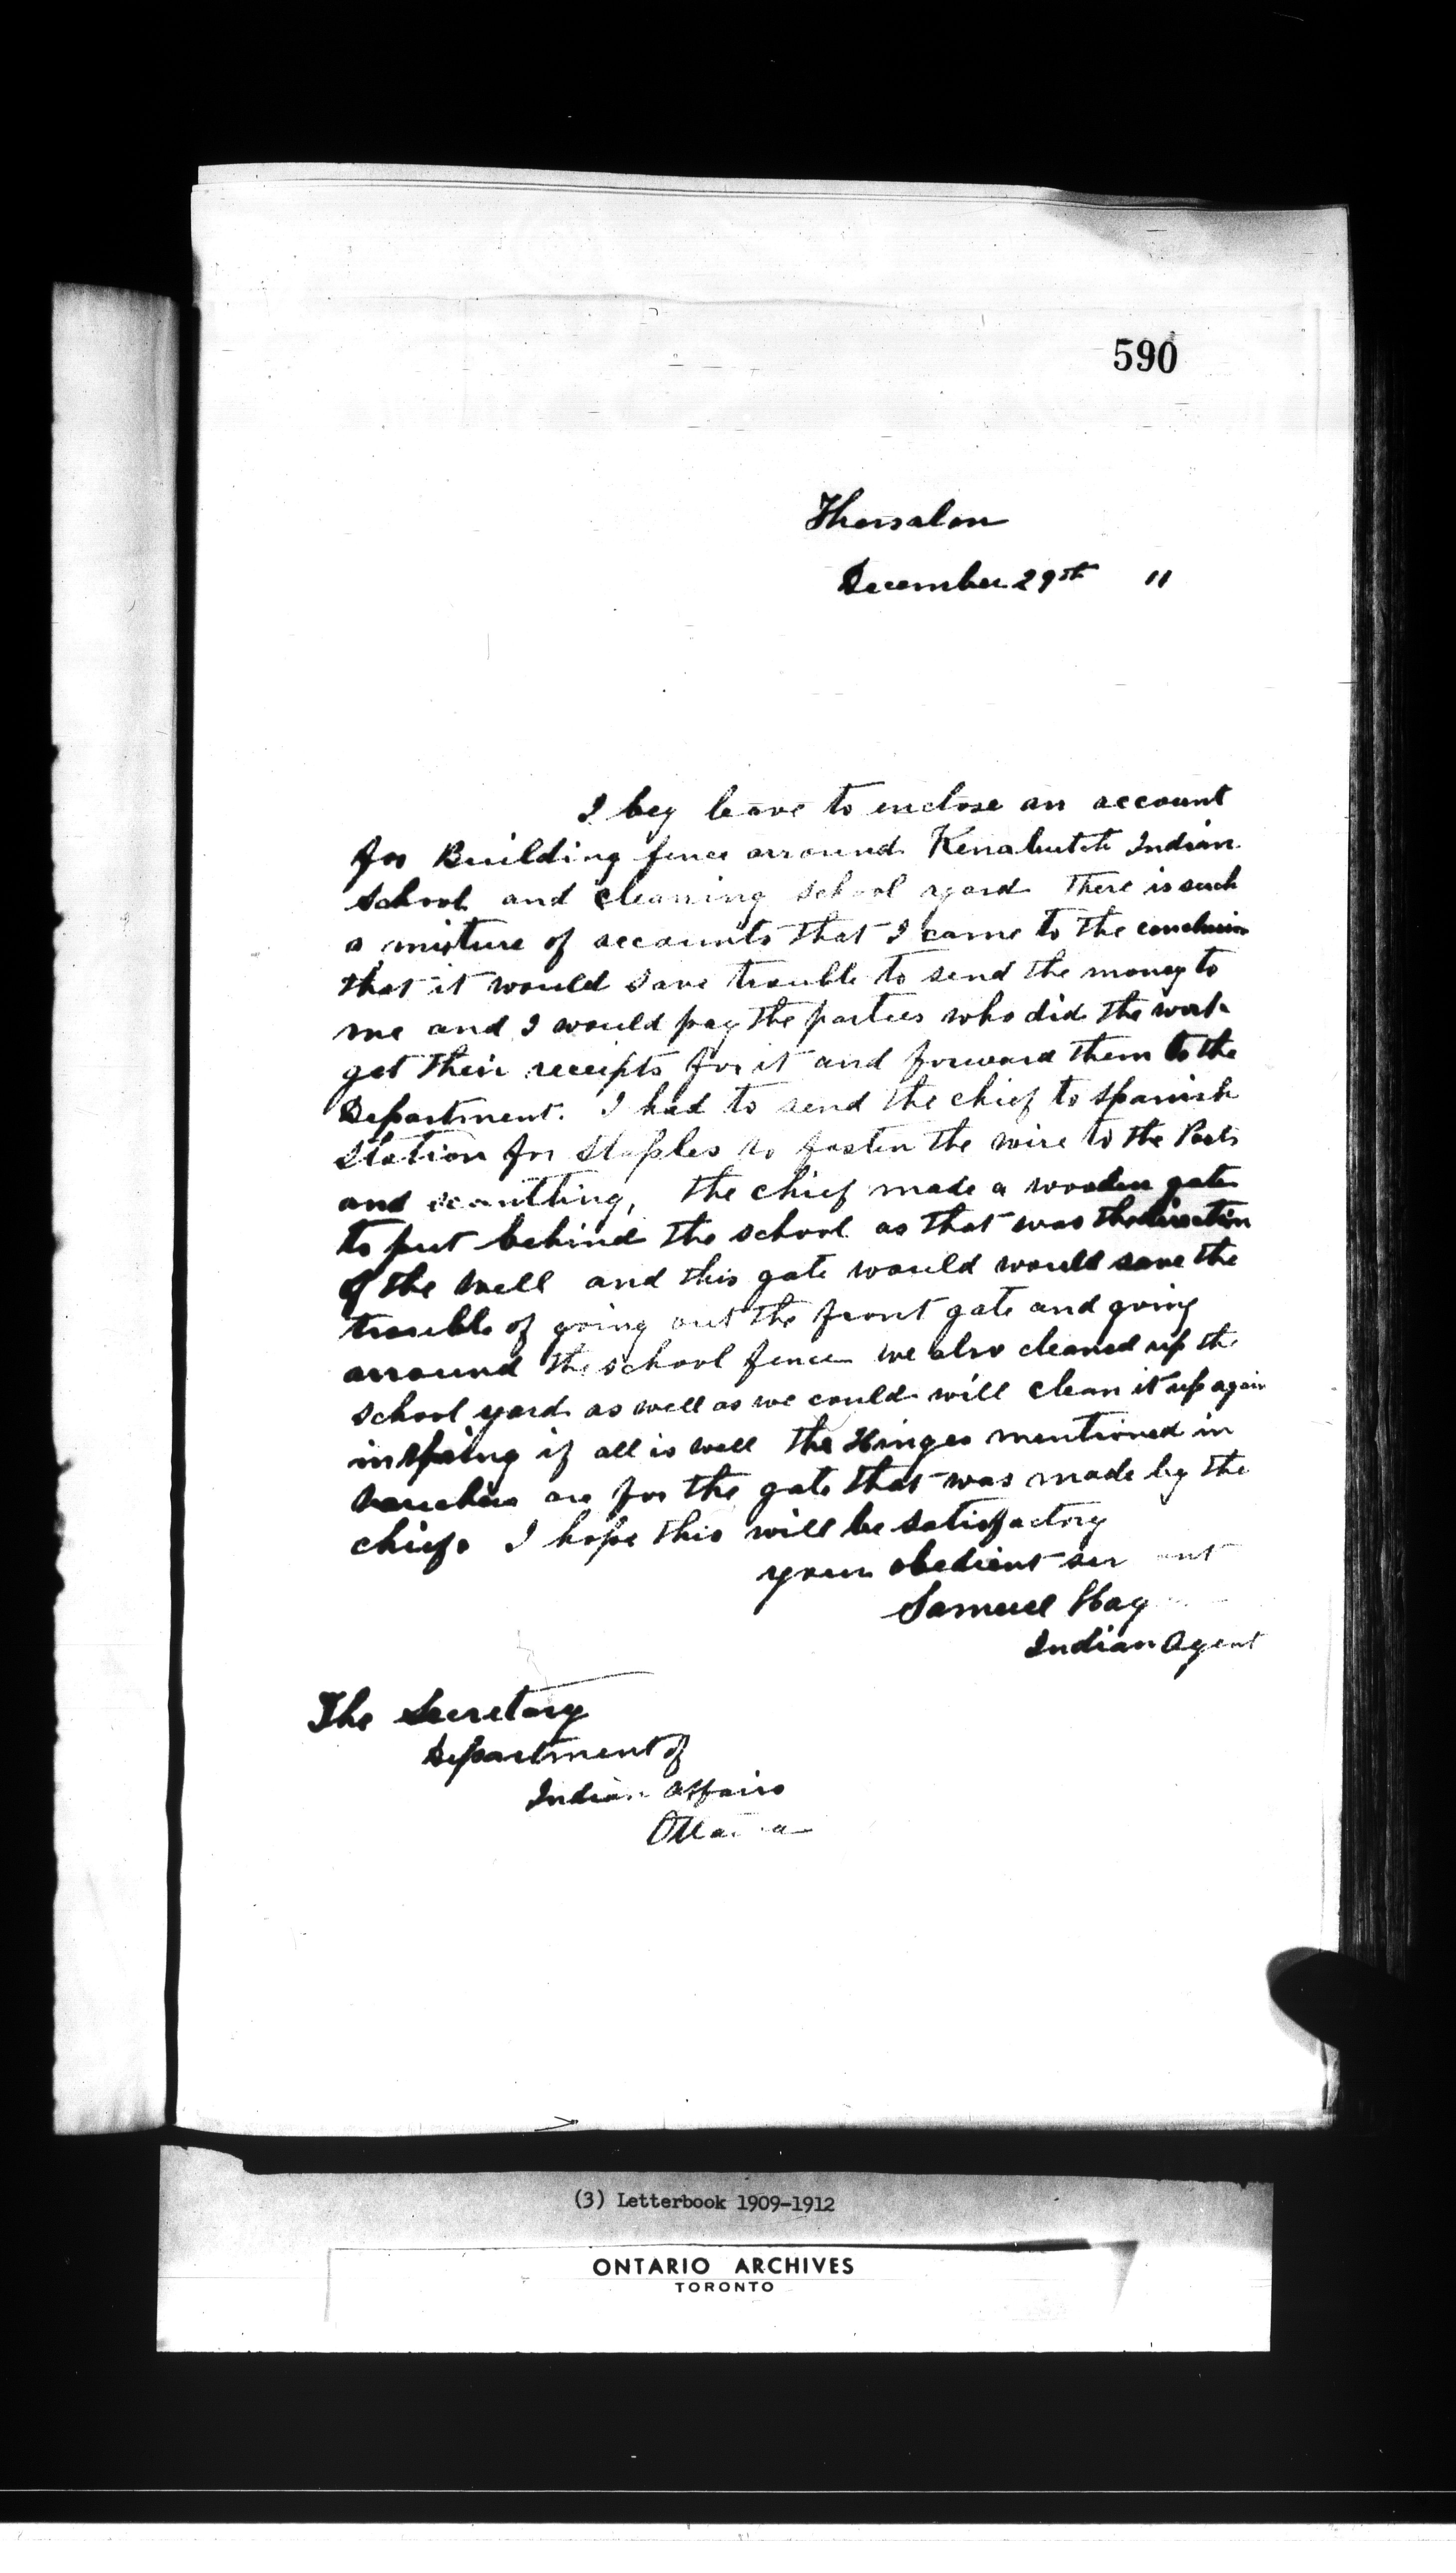 590
Thessalon
December 29th 11
I beg leave to enclose an account
for Building fence arround Kenabutch Indian
School and cleaning school yard There is such
a mixture of accounts that I came to the conclusion
that it would save trouble to send the money to
me and I would pay the parties who did the work
get their receipts for it and forward them to the
Department. I had to send the chief to Spanish
Station for Staples to fasten the wire to the Posts
and scantling, the chief made a wooden gate
to put behind the school as that was the direction
of the well and this gate would would save the
trouble of going out the front gate and going
arround the school fence we also cleaned up the
school yard as well as we could will clean it up again
in spring if all is well The Hinges mentioned in
vouchers are for the gate that was made by the
chief. I hope this will be satisfactory
your obedient ser ant
Samuel Hag
Indian Agent
The Secretary
Department of
Indian Affairs
Ottawa
(3) Letterbook 1909-1912
ONTARIO ARCHIVES
TORONTO